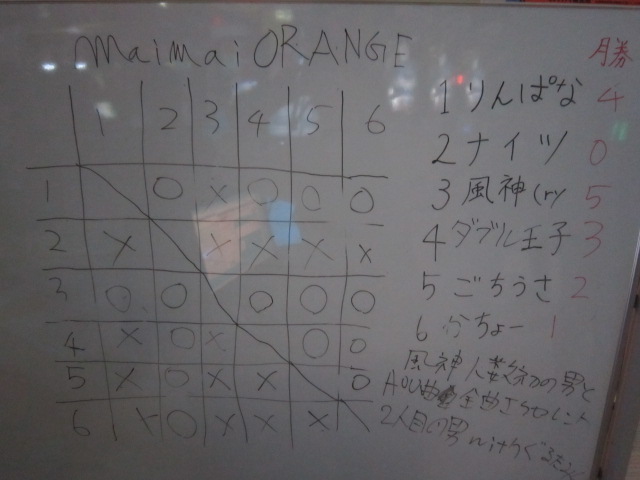 maimai ORANGE
勝
1 2 3 4 5 6
1 ○ × ○ ○ ○
2 × × × × ×
3 ○ ○ ○ ○ ○
4 × ○ × ○ ○
5 × ○ × × ○
6 × ○ × × ×
1 りんぱな 4
2 ナイツ 0
3 風神(ry 5
4 ダブル王子 3
5 ごちうさ 2
6 ちょー 1
風神 の男と
全曲
2人目の男 with